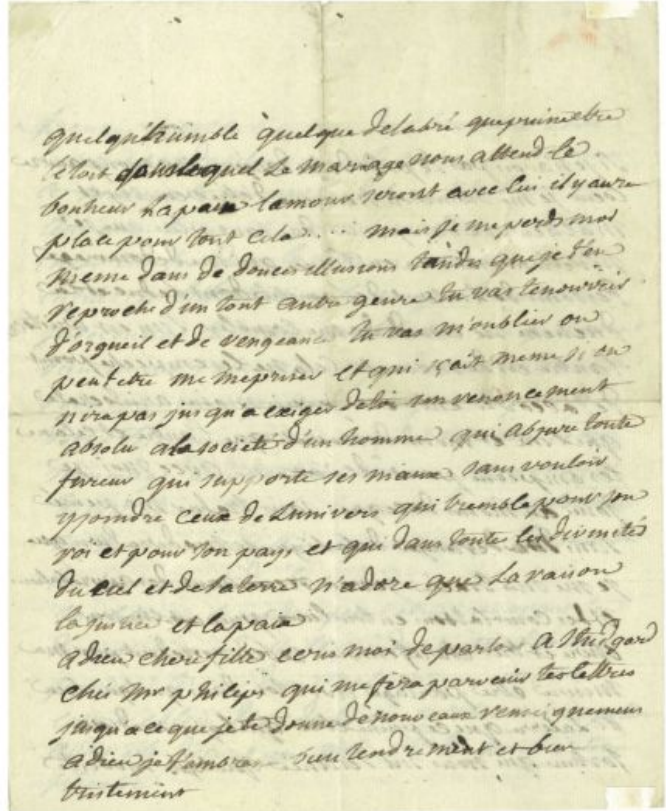 quelqu'humble quelque delabré que puisse etre
le toit dans lequel Le mariage nous attend le
bonheur La paix lamour seront avec lui il y aura
place pour tout cela .... mais je me perds moi
meme dans de douces illusions tandis que je t'en
reproche d'un tout autre genre tu vas te nourrir
d'orgueil et de vengeance tu vas m'oublier ou
peutetre me mepriser et qui sçait meme si on
n'ira pas jusqu'a exiger de toi un renoncement
absolu a la societé d'un homme qui abjure toute
fureur qui supporte ses maux sans vouloir
y joindre ceux de Lunivers qui tremble pour son
roi et pour son pays et qui dans toute les divinités
du ciel et de la terre n'adore que La raison
la justice et la paix
adieu chere fille ecris moi de par la a
chés Mr philips qui me fera parvenir tes lettres
jusqu'a ce que je te donne de nouveaux renseignemens
adieu je t'embrasse bien tendrement et bien
tristement